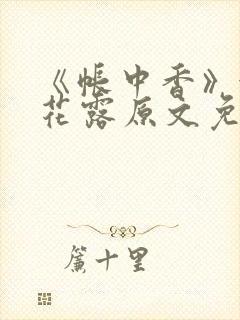 《帐中香》
花露原文免
帘十里